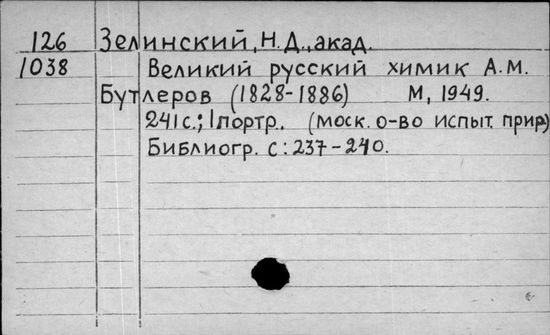 126 Зелинский, Н.Д., акад.
1038 Великий русский химик А.М.
Бутлеров (1828-1886) М, 1949.
241с.; 1портр.. (моск. о-во испыт. прир)
Библиогр. с: 237-240.